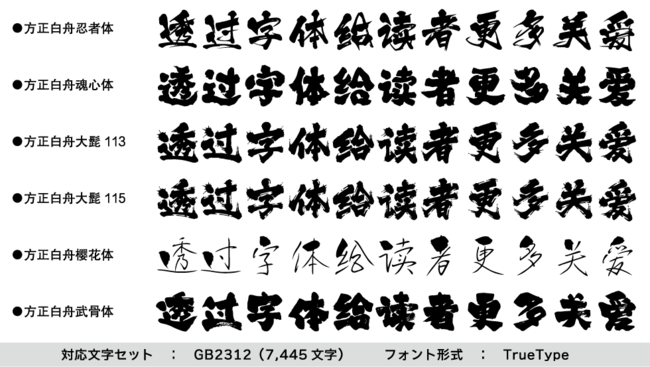 ●方正白舟忍者体 透过字体给读者更多关爱
●方正白舟魂心体 透过字体给读者更多关爱
●方正白舟大髭 113 透过字体给读者更多关爱
●方正白舟大髭 115 透过字体给读者更多关爱
●方正白舟樱花体 透过字体给读者更多关爱
●方正白舟武骨体 透过字体给读者更多关爱
対応文字セット ： GB2312（7,445 文字） フォント形式 ： TrueType